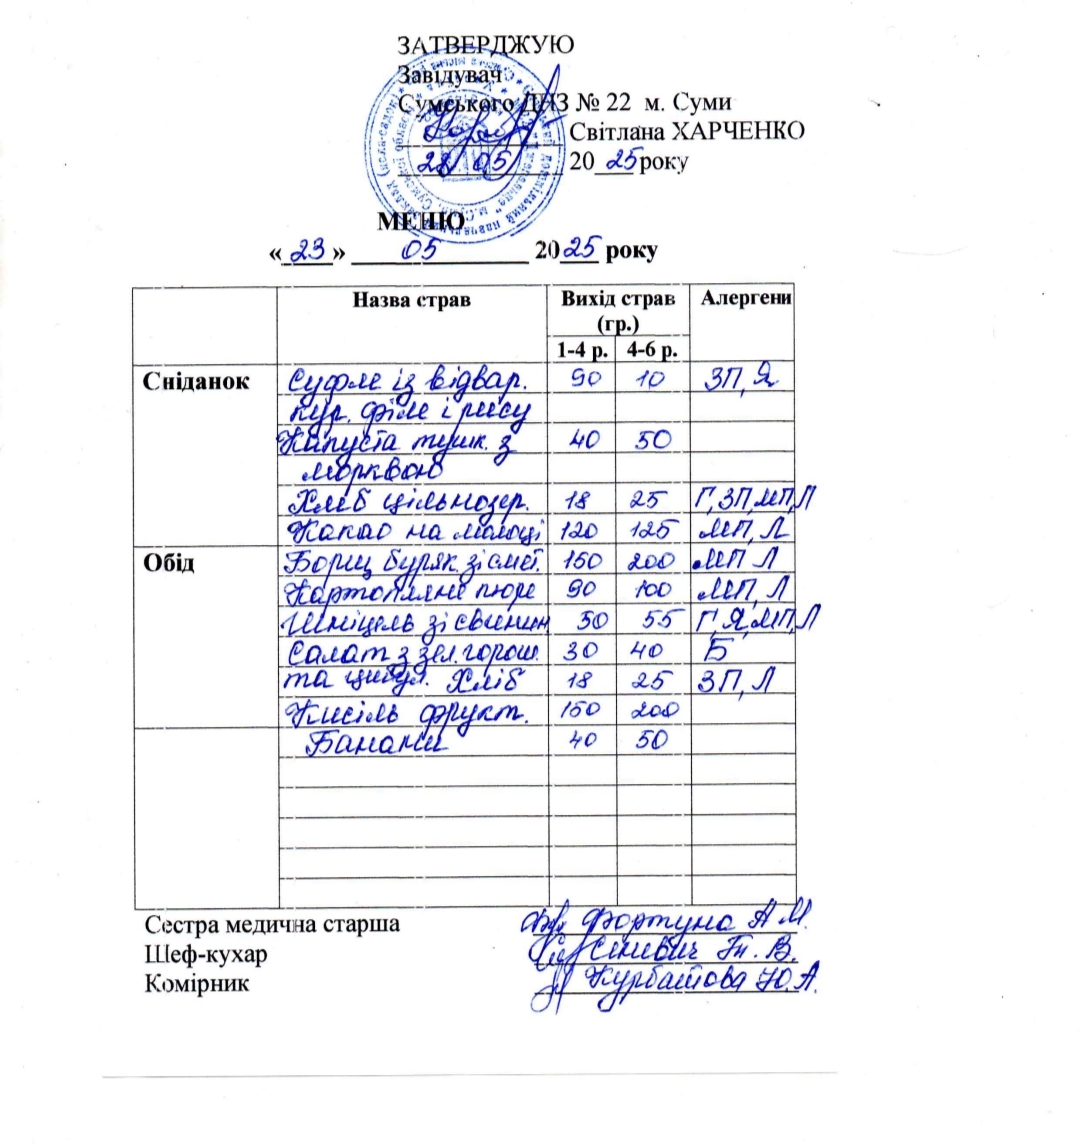 ЗАТВЕРДЖУЮ
Завідувач
Сумського ДНЗ № 22 м. Суми
Світлана ХАРЧЕНКО
05 2025 року
МЕНЮ
«23» 05 2025 року
Назва страв Вихід страв (гр.) Алергени
1-4 р. 4-6 р.
Сніданок Суфле із відвар. 90 10 ЗП, Я
кур. філе і рису
Капуста тушк. з 40 50
морквою
Хліб цільнозер. 18 25 Г, ЗП, МП, Л
Какао на молоці 120 125 МП, Л
Обід Борщ буряк. зі смет. 150 200 МП Л
Картопляне пюре 90 100 МП, Л
Шніцель зі свинин 50 55 Г, Я, МП, Л
Салат з зел. горош. 30 40 Б
та цибул. Хліб 18 25 ЗП, Л
Кисіль фрукт. 150 200
Банани 40 50
Сестра медична старша Фортуна А М.
Шеф-кухар Сіневич Т. В.
Комірник Курбатова Ю. А.